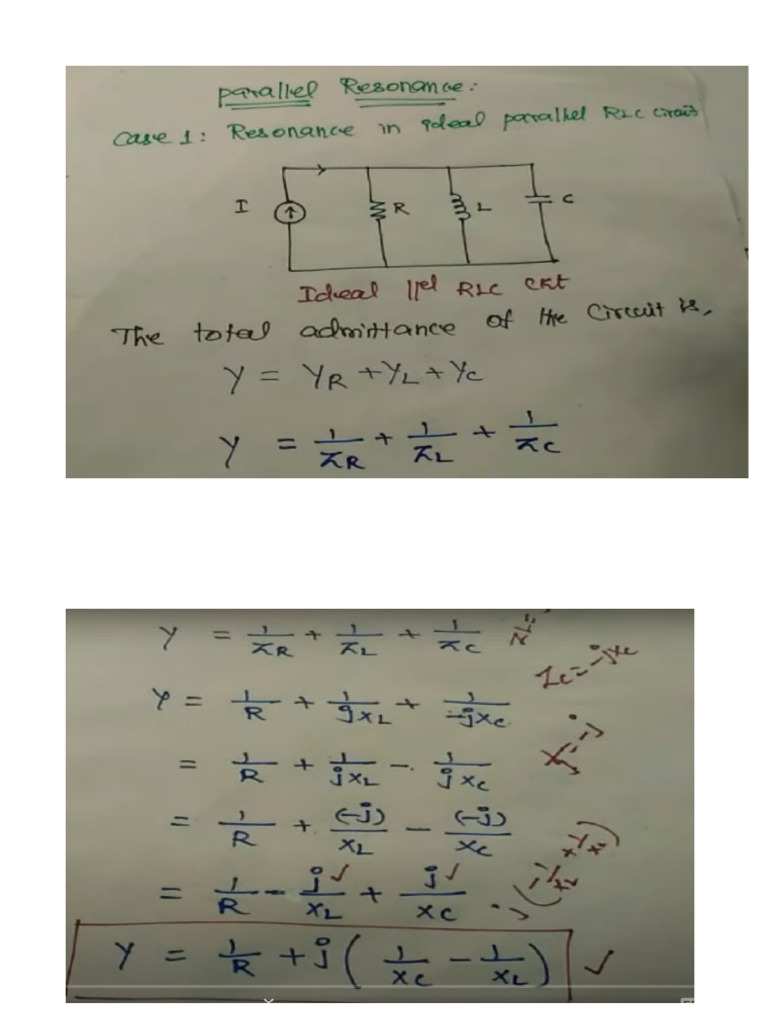 parallel Resonance:
Case 1: Resonance in ideal parallel RLC circuit
I R L C
Ideal ||el RLC ckt
The total admittance of the Circuit is,
Y = YR + YL + YC
Y = 1/ZR + 1/ZL + 1/ZC
Y = 1/ZR + 1/ZL + 1/ZC
Zc = -jxc
Y = 1/R + 1/jXL + 1/-jXc
1/j = -j
= 1/R + 1/jXL - 1/jXc
= 1/R + (-j)/XL - (-j)/Xc
= 1/R - j/XL + j/XC
j(-1/XL + 1/Xc)
Y = 1/R + j(1/XC - 1/XL)